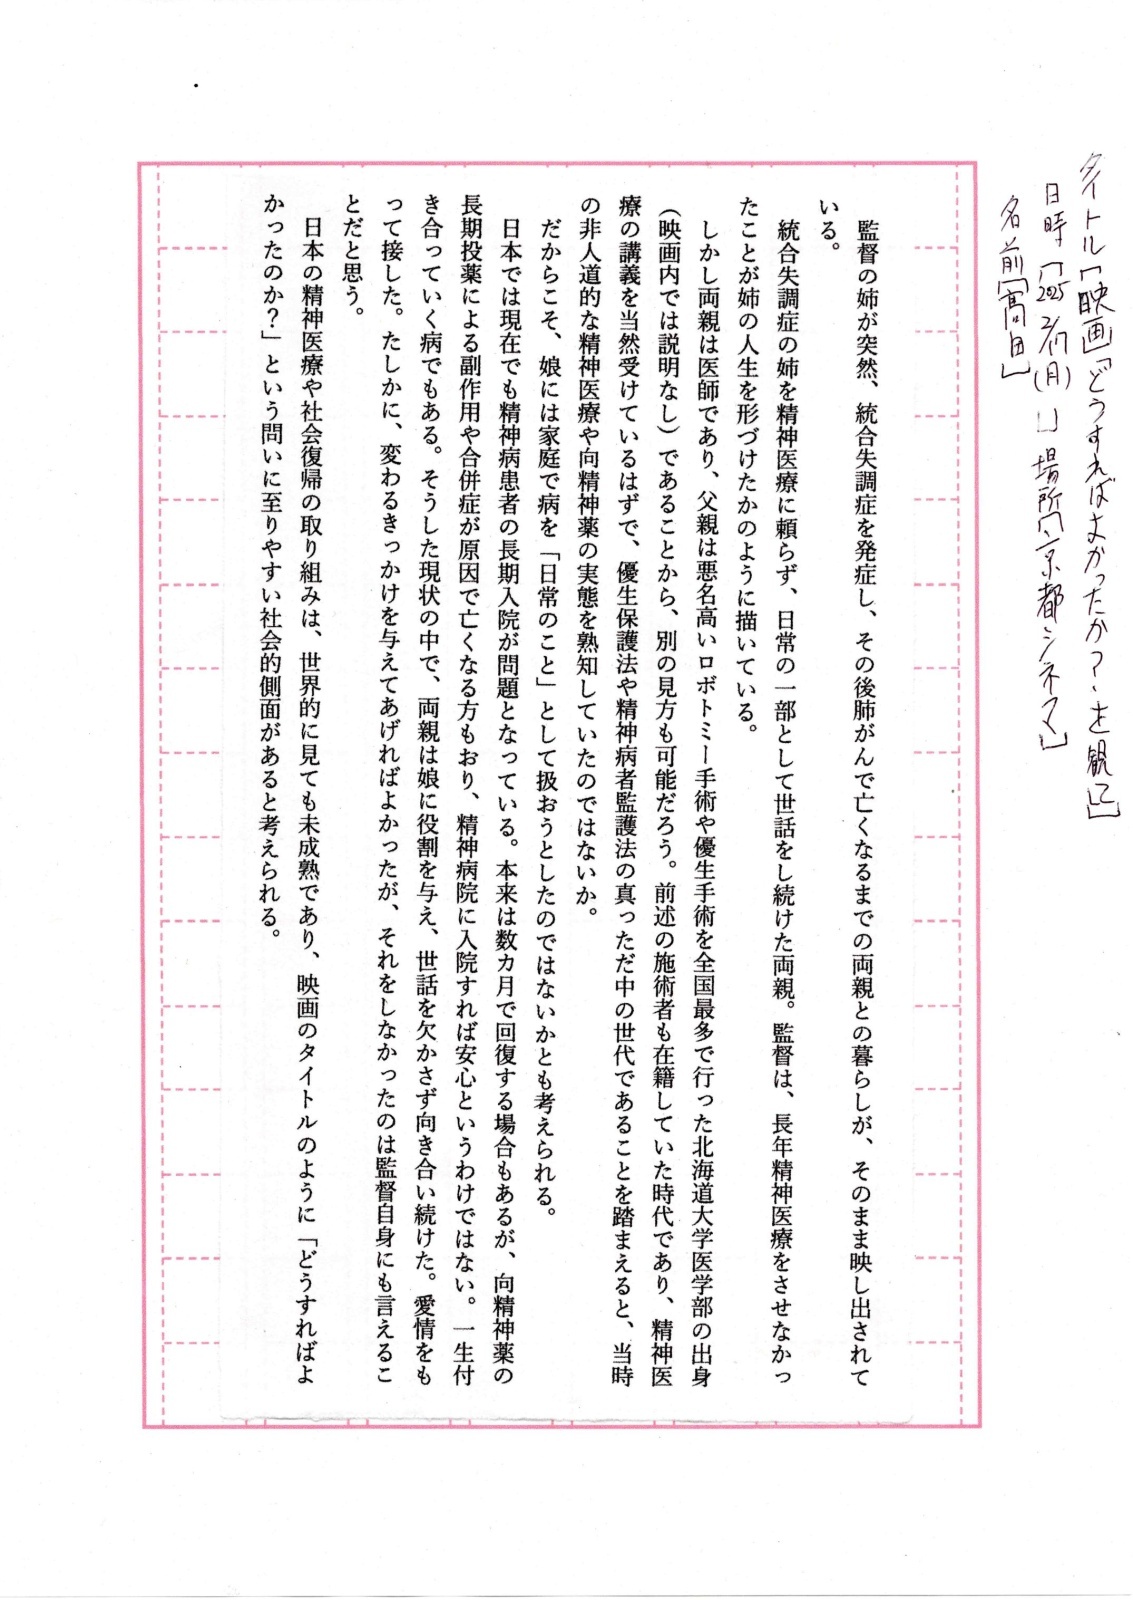 タイトル「映画『どうすればよかったか？』を観て」
日時「2025 2/17(月) 」場所「京都シネマ」
名前「高田」
監督の姉が突然、統合失調症を発症し、その後肺がんで亡くなるまでの両親との暮らしが、そのまま映し出されて
いる。
統合失調症の姉を精神医療に頼らず、日常の一部として世話をし続けた両親。監督は、長年精神医療をさせなかっ
たことが姉の人生を形づけたかのように描いている。
しかし両親は医師であり、父親は悪名高いロボトミー手術や優生手術を全国最多で行った北海道大学医学部の出身
（映画内では説明なし）であることから、別の見方も可能だろう。前述の施術者も在籍していた時代であり、精神医
療の講義を当然受けているはずで、優生保護法や精神病者監護法の真っただ中の世代であることを踏まえると、当時
の非人道的な精神医療や向精神薬の実態を熟知していたのではないか。
だからこそ、娘には家庭で病を「日常のこと」として扱おうとしたのではないかとも考えられる。
日本では現在でも精神病患者の長期入院が問題となっている。本来は数カ月で回復する場合もあるが、向精神薬の
長期投薬による副作用や合併症が原因で亡くなる方もおり、精神病院に入院すれば安心というわけではない。一生付
き合っていく病でもある。そうした現状の中で、両親は娘に役割を与え、世話を欠かさず向き合い続けた。愛情をも
って接した。たしかに、変わるきっかけを与えてあげればよかったが、それをしなかったのは監督自身にも言えるこ
とだと思う。
日本の精神医療や社会復帰の取り組みは、世界的に見ても未成熟であり、映画のタイトルのように「どうすればよ
かったのか？」という問いに至りやすい社会的側面があると考えられる。